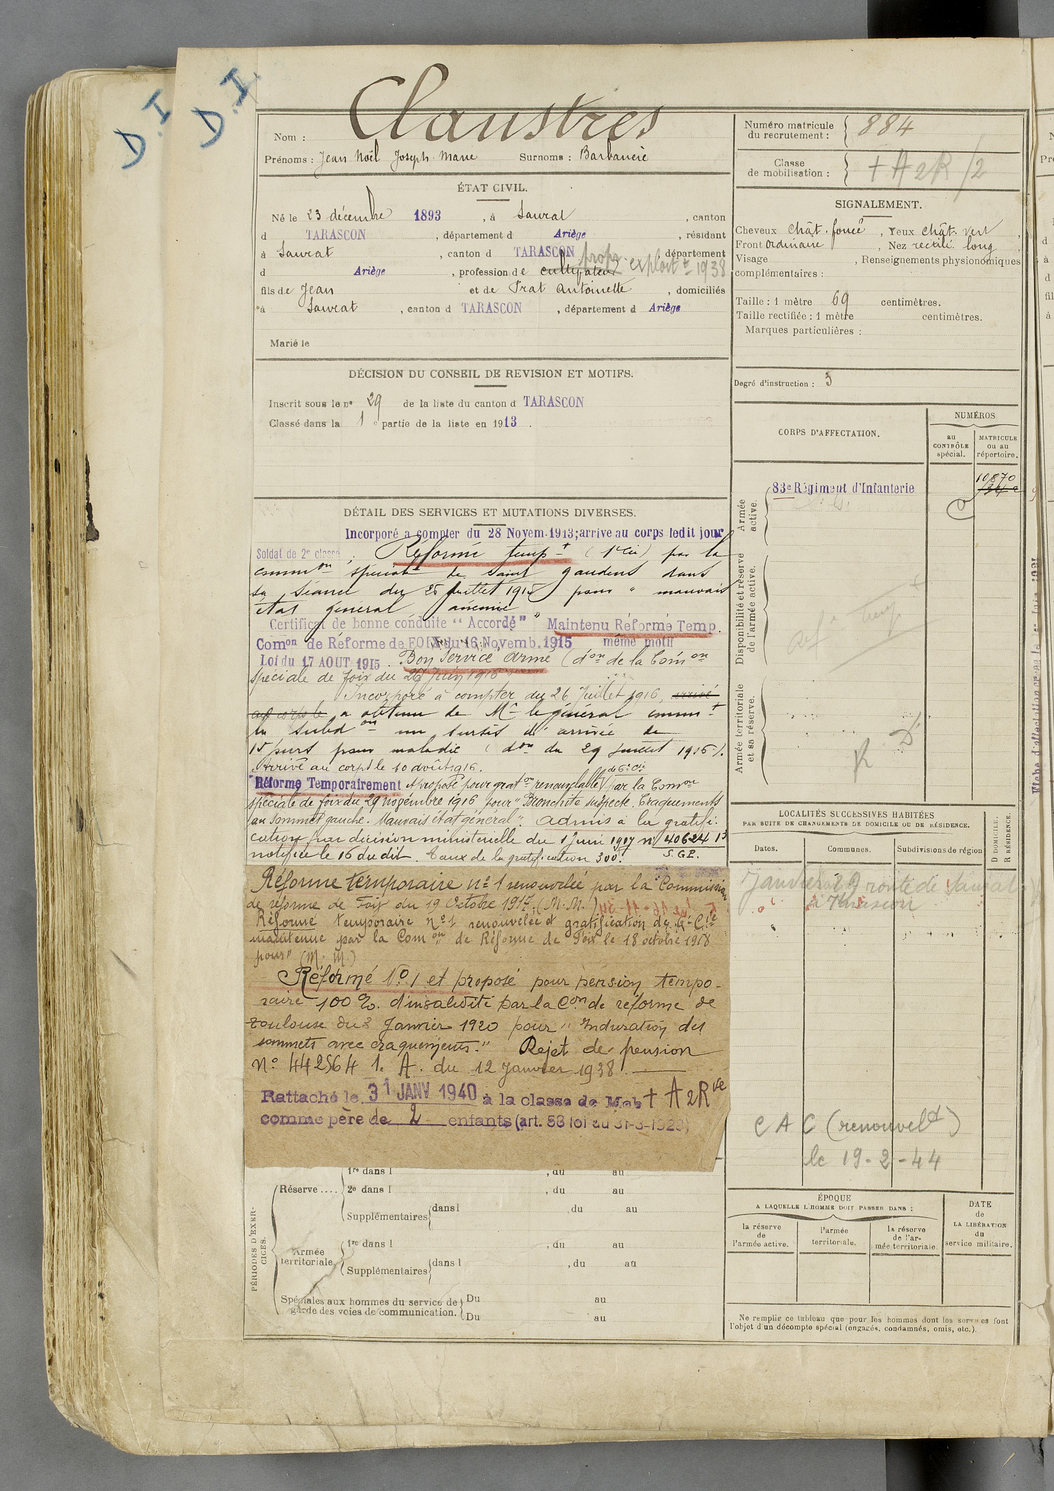 D.I
D.I.
Nom : Claustres
Prénoms : Jean Noël Joseph Marie Surnoms : Barbanère
ÉTAT CIVIL.
Né le 23 décembre 1893, à Saurat, canton
d TARASCON, département d Ariège, résidant
à Saurat, canton d TARASCON, département
d Ariège, profession de cultivateur propr. exploit t 1938
fils de Jean et de Prat Antoinette, domiciliés
à Saurat, canton d TARASCON, département d Ariège
Marié le
DÉCISION DU CONSEIL DE REVISION ET MOTIFS.
Inscrit sous le n° 29 de la liste du canton d TARASCON
Classé dans la 1 e partie de la liste en 1913.
DÉTAIL DES SERVICES ET MUTATIONS DIVERSES.
Incorporé à compter du 28 Novem. 1913; arrive au corps ledit jour
Soldat de 2e classe. Réformé temp t par la
comm on spéciale de Saint Gaudens dans
sa séance du 25 juillet 1915 pour " mauvais
état général anémie "
Certificat de bonne conduite "Accordé" Maintenu Réformé Temp.
Com on de Réforme de FOIX du 16 Novemb. 1915 même motif
Loi du 17 AOUT 1915. Bon Service armé (d on de la Com on
spéciale de Foix du 26 Juin 1916
Incorporé à compter du 26 Juillet 1916, arrivé
au corps le a obtenu de Mr le général comm t
la subd on un sursis d'arrivée de
15 jours pour maladie (d on du 29 juillet 1916).
Arrivé au corps le 10 août 1916.
Réformé Temporairement et proposé pour grat on renouvelable par la Com on
spéciale de Foix du 29 novembre 1916 pour "Bronchite suspecte. Craquements
au sommet gauche. Mauvais état général". Admis à la gratifi-
cation par décision ministérielle du 1 Juin 1917 n° 40624 13
notifiée le 16 du dit. Taux de la gratification 300f. S.G.P.
Réforme temporaire n° 1 renouvelée par la Commission
de réforme de Foix du 19 Octobre 1917. (M.M.)
Réforme temporaire n° 1 renouvelée et gratification de 6e Cie
maintenue par la Com on de Réforme de Foix le 18 octobre 1918
pour (M.M)
Réformé n° 1 et proposé pour pension tempo-
raire 100 %. d'invalidité par la C on de réforme de
Toulouse du 2 Janvier 1920 pour "Induration des
sommets avec craquements." Rejet de pension
N° 442564 I. A. du 12 janvier 1938.
Rattaché le 31 JANV 1940 à la classe de Mob + A 2 R
comme père de 2 enfants (art. 58 loi du 31-3-1928)
PÉRIODES D'EXERCICES.
1re dans l , du au
Réserve .... 2e dans l , du au
Supplémentaires dans l , du au
Armée territoriale 1re dans l , du au
Supplémentaires dans l , du au
Spéciales aux hommes du service de garde des voies de communication. Du au
Du au
Numéro matricule du recrutement : 884
Classe de mobilisation : + A 2 R /2
SIGNALEMENT.
Cheveux chât. foncé, Yeux chât. vert,
Front ordinaire, Nez rectil. long
Visage , Renseignements physionomiques
complémentaires :
Taille : 1 mètre 69 centimètres.
Taille rectifiée : 1 mètre centimètres.
Marques particulières :
Degré d'instruction : 3
CORPS D'AFFECTATION.
NUMÉROS
au CONTRÔLE spécial.
MATRICULE ou au répertoire.
Armée active.
83e Régiment d'Infanterie
10870
Disponibilité et réserve de l'armée active.
réf é temp
Armée territoriale et sa réserve.
R D
LOCALITÉS SUCCESSIVES HABITÉES
PAR SUITE DE CHANGEMENTS DE DOMICILE OU DE RÉSIDENCE.
Dates.
Communes.
Subdivisions de région
D DOMICILE.
R RÉSIDENCE.
Janvier 29 route de Saurat
à Tarascon
C A C (renouvel d)
le 19-2-44
ÉPOQUE
A LAQUELLE L'HOMME DOIT PASSER DANS :
la réserve de l'armée active.
l'armée territoriale.
la réserve de l'armée territoriale.
DATE de LA LIBÉRATION du service militaire.
Ne remplir ce tableau que pour les hommes dont les services font
l'objet d'un décompte spécial (engagés, condamnés, omis, etc.).